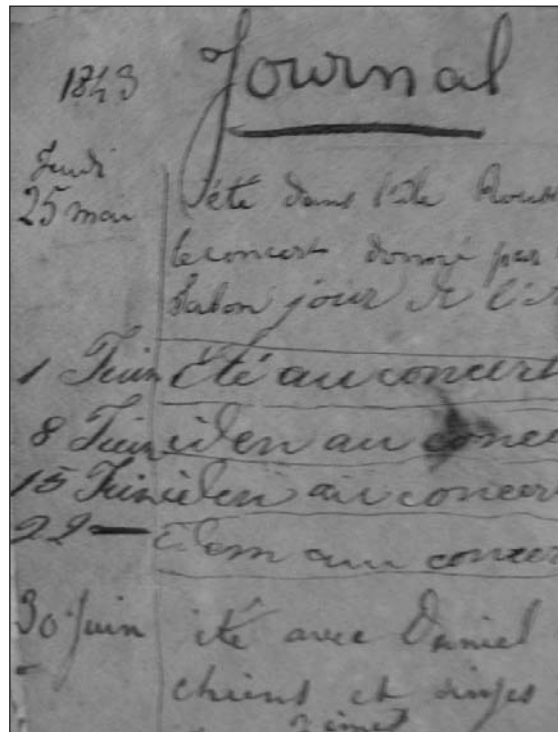 1843 Journal
Jeudi
25 mai été dans l'île Rouss
le concert donné par
Salon jour de l'A
1 Juin Été au concert
8 Juin iden au conce
15 Juin iden au concer
22 — idem au concer
30 Juin été avec Daniel
chiens et singes